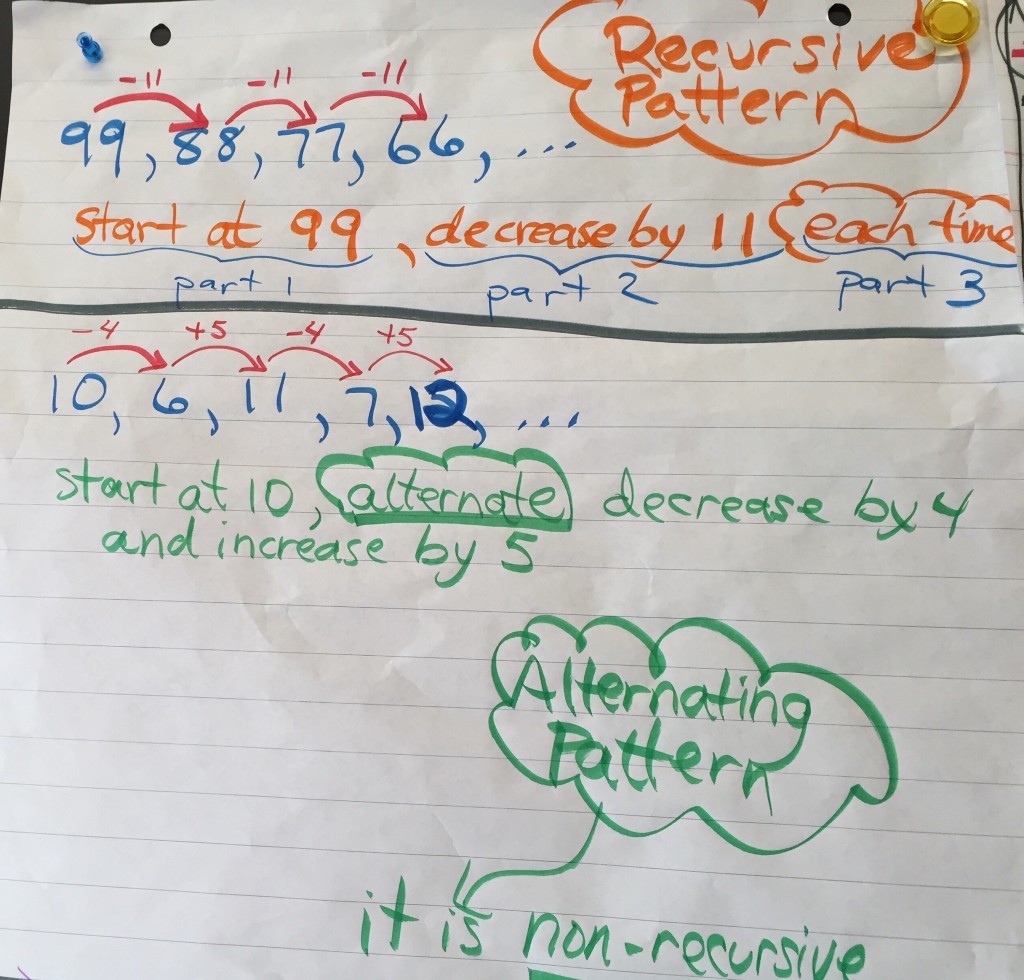 Recursive
Pattern
-11 -11 -11
99, 88, 77, 66, ...
start at 99, decrease by 11 each time
part 1 part 2 part 3
-4 +5 -4 +5
10, 6, 11, 7, 12, ...
start at 10, alternate decrease by 4
and increase by 5
Alternating
Pattern
it is non-recursive